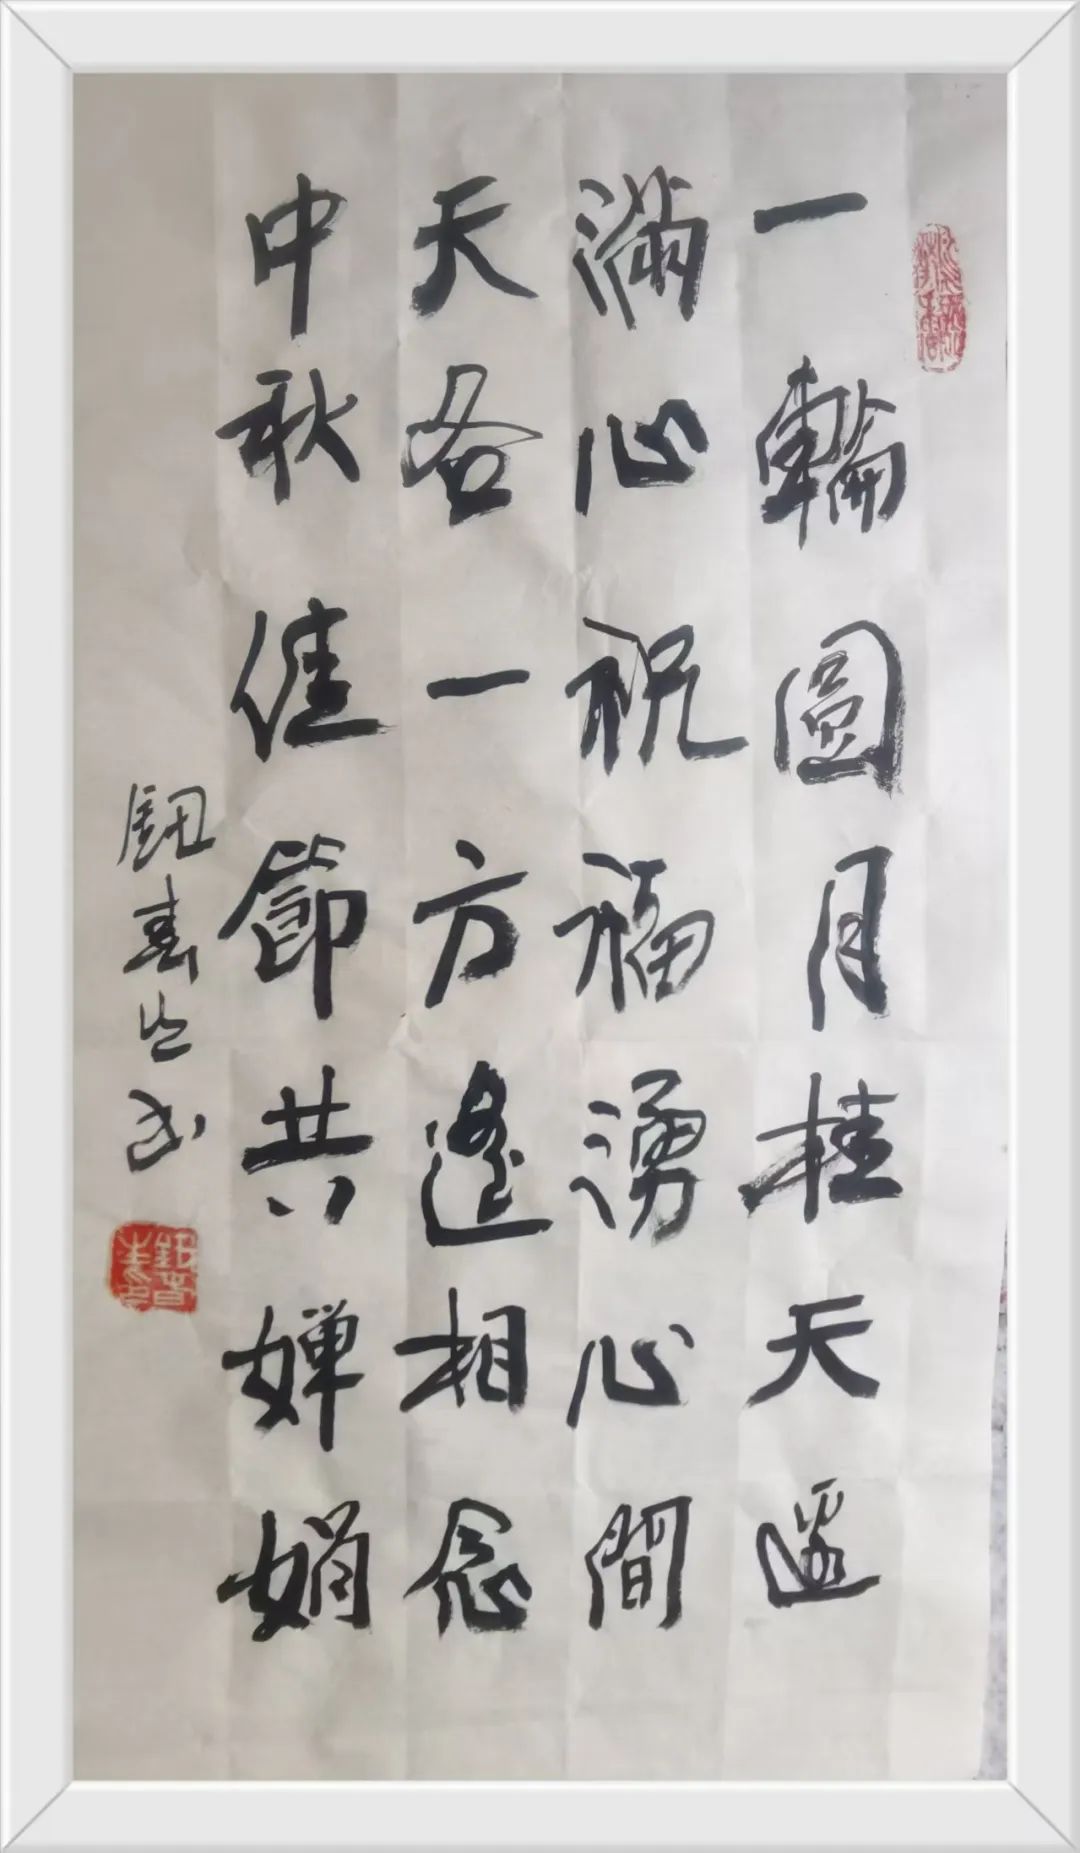 一輪圓月挂天邊
滿心祝福湧心間
天各一方遙相念
中秋佳節共嬋娟
书